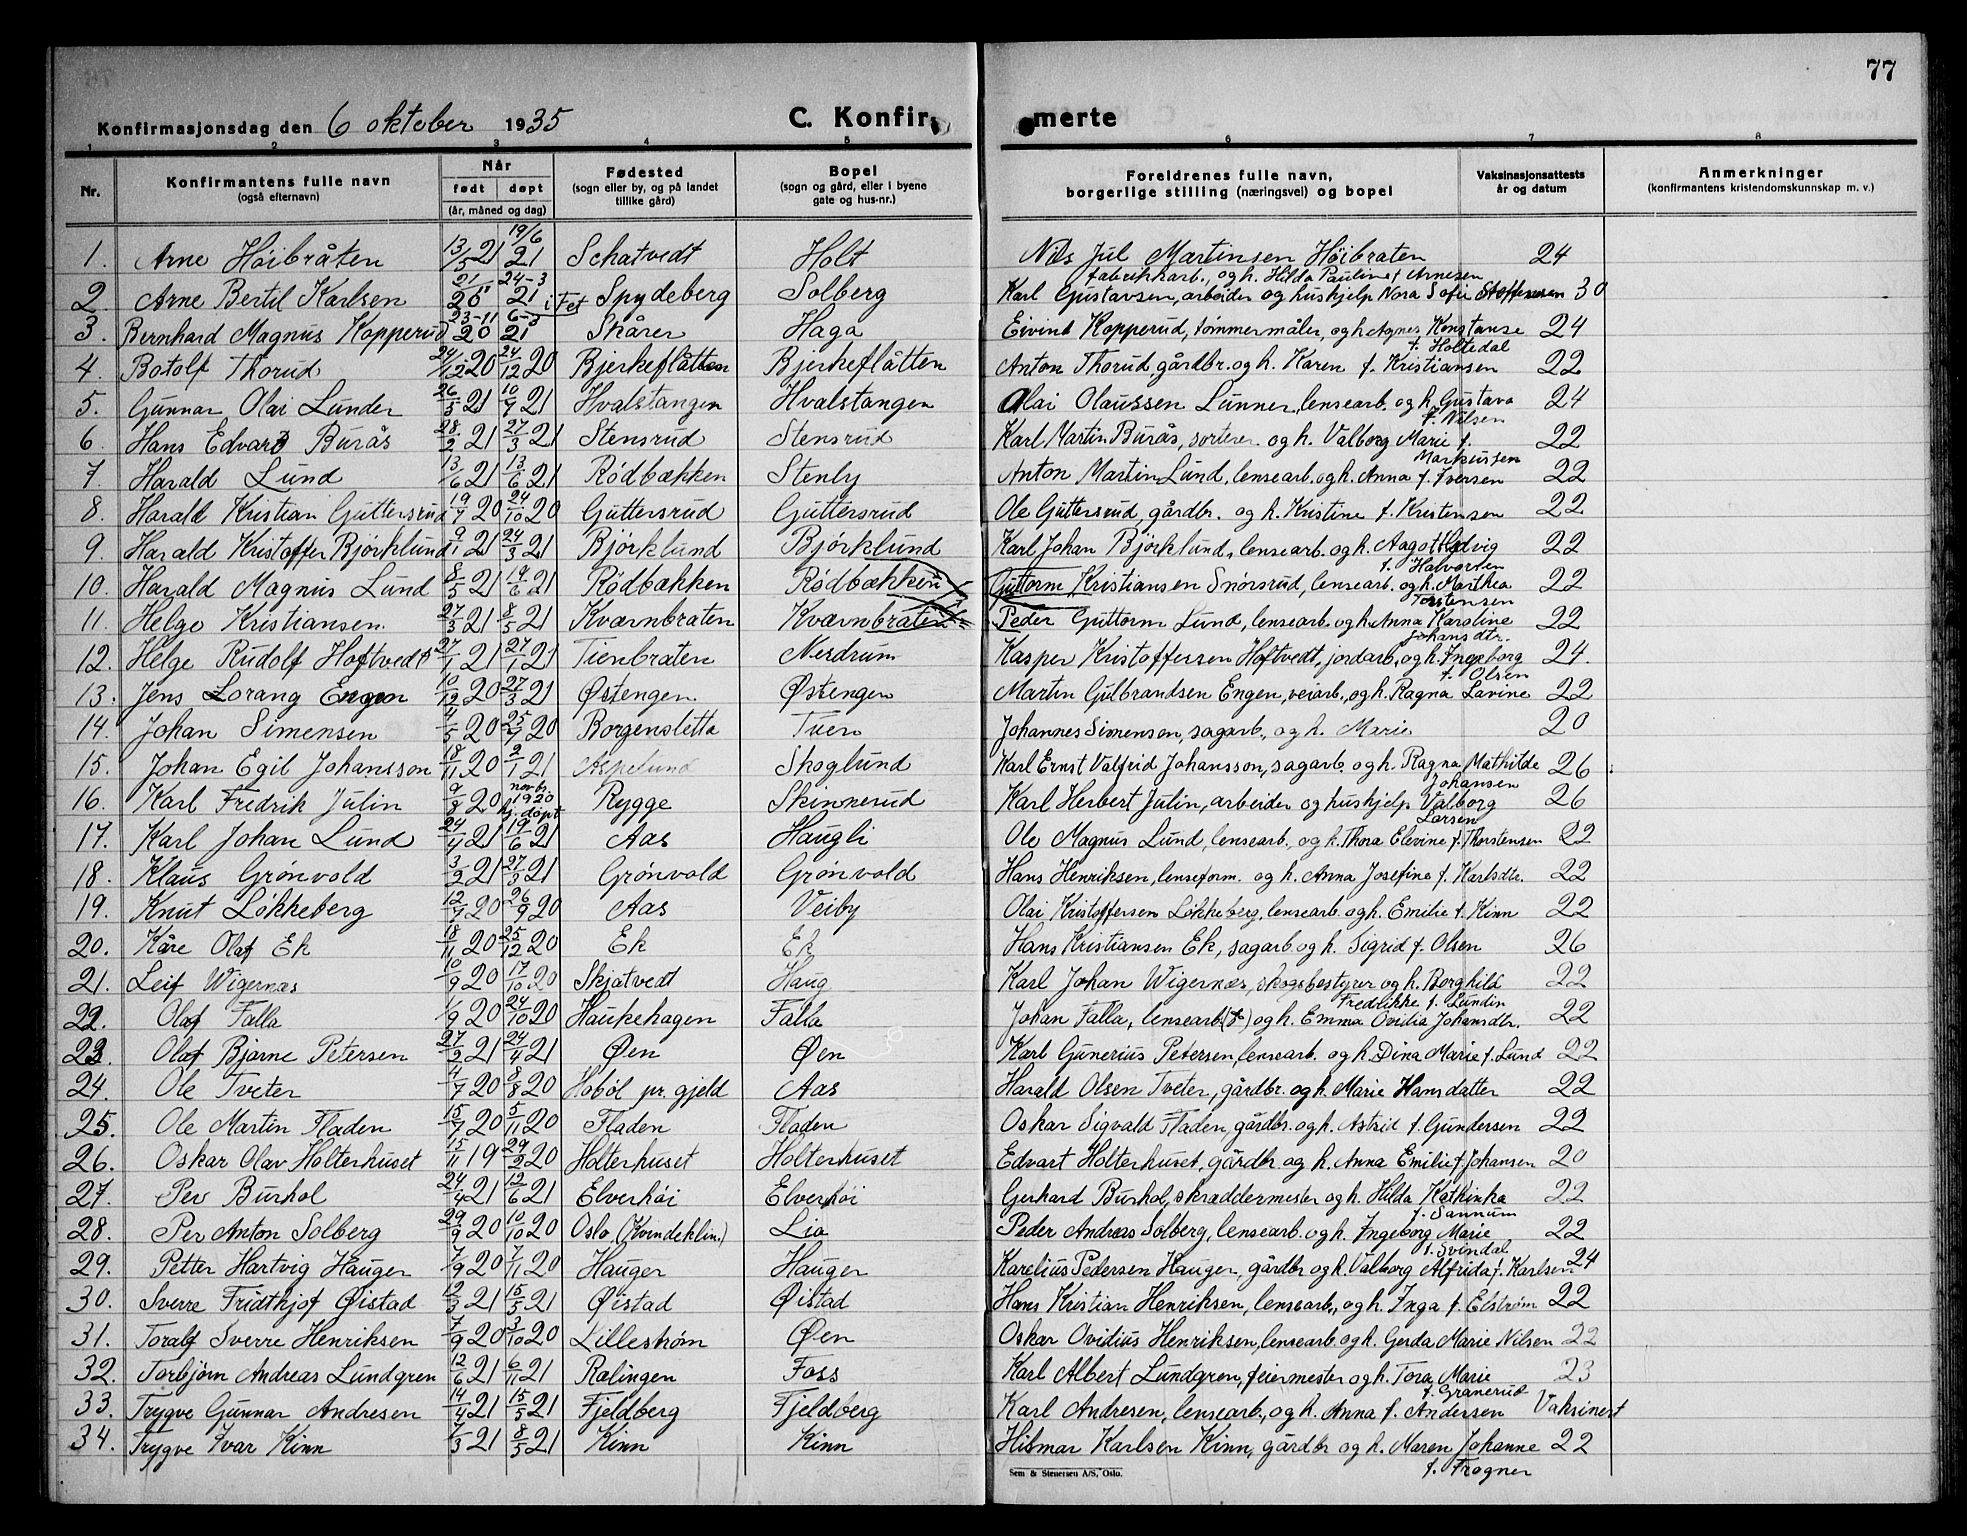 77
Konfirmasjonsdag den 6 oktober 1935 C. Konfirmerte
1 2 3 4 5 6 7 8
Nr. Konfirmantens fulle navn (også efternavn) Når født døpt (år, måned og dag) Fødested (sogn eller by, og på landet tillike gård) Bopel (sogn og gård, eller i byene gate og hus-nr.) Foreldrenes fulle navn, borgerlige stilling (næringsvei) og bopel Vaksinasjonsattests år og datum Anmerkninger (konfirmantens kristendomskunnskap m. v.)
1. Arne Høibråten 13/5 21 19/6 21 Schatvedt Holt Nils Jul Martinsen Høibraten fabrikkarb., og h. Hilda Pauline f. Arnesen 24
2. Arne Bertil Karlsen 20 24-3 21 i Fet Spydeberg Solberg Karl Gustavsen, arbeider og hushjelp Nora Sofie Stoffersen 30
3. Bernhard Magnus Kopperud 23-11 20 21 Skårer Haga Eivind Kopperud, tømmermåler, og h. Agnes Konstanse f. Holtedal 24
4. Botolf Thorud 24/12 20 24/12 20 Bjerkeflåtten Bjerkeflåtten Anton Thorud, gårdbr. og h. Karen f. Kristiansen 22
5. Gunnar Olai Lunder 26/5 21 10/7 21 Hvalstangen Hvalstangen Olai Olaussen Lunner, lensearb. og h. Gustava f. Nilsen 24
6. Hans Edvard Burås 28/2 21 27/3 21 Stensrud Stensrud Karl Martin Burås, sorterer og h. Valborg Marie f. Markussen 22
7. Harald Lund 13/6 21 13/6 21 Rødbækken Stenby Anton Martin Lund, lensearb. og h. Anna f. Iversen 22
8. Harald Kristian Guttersrud 19/7 20 24/10 20 Guttersrud Guttersrud Ole Guttersrud, gårdbr. og h. Kristine f. Kristensen 22
9. Harald Kristoffer Bjørklund 9/1 21 24/3 21 Bjørklund Bjørklund Karl Johan Bjørklund, lensearb. og h. Aagot Hedvig f. Halvorsen 22
10. Harald Magnus Lund 8/5 21 19/6 21 Rødbækken Rødbækken Guttorm Kristiansen Snørsrud, lensearb. og h. Marthea Torstensen 22
11. Helge Kristiansen 27/3 21 8/5 21 Kværnbraten Kværnbraten Peder Guttorm Lund, lensearb. og h. Anna Karoline Johansdtr. 22
12. Helge Rudolf Hoftvedt 27/1 21 27/1 21 Tienbraten Nerdrum Kasper Kristoffersen Hoftvedt, jordarb., og h. Ingeborg f. Olsen 24.
13. Jens Lorang Engen 10/12 20 27/3 21 Østengen Østengen Martin Gulbrandsen Engen, veiarb., og h. Ragna Lavine 22
14. Johan Simensen 4/5 20 25/7 20 Borgensletta Tuen Johannes Simensen, sagarb., og h. Marie 20
15. Johan Egil Johansson 18/11 20 2/1 21 Aspelund Skoglund Karl Ernst Valfrid Johansson, sagarb. og h. Ragna Mathilde Johansen 26
16. Karl Fredrik Julin 9/8 20 novbr. 1920 hj. døpt Rygge Skinnerud Karl Herbert Julin, arbeider og hushjelp Valborg Larsen 26
17. Karl Johan Lund 24/4 21 19/6 21 Aas Haugli Ole Magnus Lund, lensearb. og h. Thora Elevine f. Thorstensen 22
18. Klaus Grønvold 3/2 21 27/3 21 Grønvold Grønvold Hans Henriksen, lenseform. og h. Anna Josefine f. Karlsdtr. 22
19. Knut Løkkeberg 12/7 20 26/9 20 Aas Veiby Olai Kristoffersen Løkkeberg, lensearb. og h. Emilie f. Kinn 22
20. Kåre Olaf Ek 18/11 20 25/12 20 Ek Ek Hans Kristiansen Ek, sagarb og h. Sigrid f. Olsen 26
21. Leif Wigernæs 10/9 20 17/10 20 Skjatvedt Haug Karl Johan Wigernæs, skogsbestyrer og h. Borghild Fredrikke f. Lundin 22
22. Olaf Falla 1/9 20 24/10 20 Haukehagen Falla Johan Falla, lensearb. (f) og h. Emma Ovidia Johansdtr. 22
23. Olaf Bjarne Petersen 27/2 21 24/4 21 Øen Øen Karl Gunerius Petersen, lensearb. og h. Dina Marie f. Lund 22
24. Ole Tveter 4/7 20 8/8 20 Hobøl pr. gjeld Aas Harald Olsen Tveter, gårdbr. og h. Marie Hansdatter 22
25. Ole Martin Fladen 15/7 20 5/11 20 Fladen Fladen Oskar Sigvald Fladen, gårdbr. og h. Astrid f. Gundersen 22
26. Oskar Olav Holterhuset 15/11 19 29/2 20 Holterhuset Holterhuset Edvart Holterhuset, gårdbr og h. Anna Emilie f. Johansen 20
27. Per Burhol 24/4 21 12/6 21 Elverhøi Elverhøi Gerhard Burhol, skræddermester og h. Hilda Kathinka f. Sannum 22
28. Per Anton Solberg 29/9 20 10/10 20 Oslo (Kvindeklin.) Lia Peder Andreas Solberg, lensearb. og h. Ingeborg Marie f. Svindal 22
29. Petter Hartvig Hauger 7/9 20 7/11 20 Hauger Hauger Karelius Pedersen Hauger, gårdbr og h. Valborg Alfrida f. Karlsen 24
30. Sverre Fridthjof Øistad 12/3 21 15/5 21 Øistad Øistad Hans Kristian Henriksen, lensearb., og h. Inga f. Elstrøm 22
31. Toralf Sverre Henriksen 7/9 20 3/10 20 Lillestrøm Øen Oskar Ovidius Henriksen, lensearb. og h. Gerda Marie Nilsen 22
32. Torbjørn Andreas Lundgren 12/6 21 6/11 21 Rælingen Foss Karl Albert Lundgren, feiermester og h. Tora Marie f. Granerud 23
33. Trygve Gunnar Andresen 14/4 21 15/5 21 Fjeldberg Fjeldberg Karl Andresen, lensearb., og h. Anna f. Andersen Vaksinert
34. Trygve Ivar Kinn 7/3 21 8/5 21 Kinn Kinn Hilmar Karlsen Kinn, gårdbr og h. Maren Johanne f. Frogner 22
Sem & Stenersen A/S, Oslo.